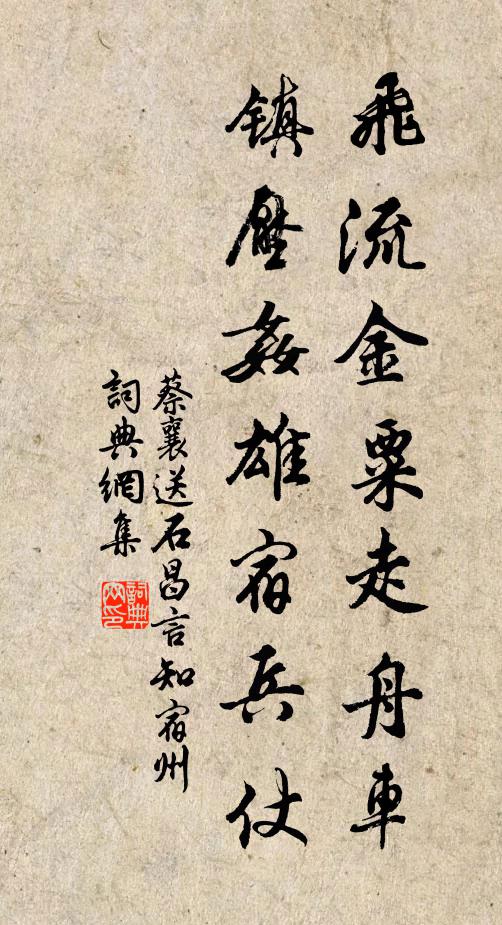 飛流金粟走舟車
鎮壓姦雄宿兵仗
蔡襄送石昌言知宿州
詞典網集
詞典网印